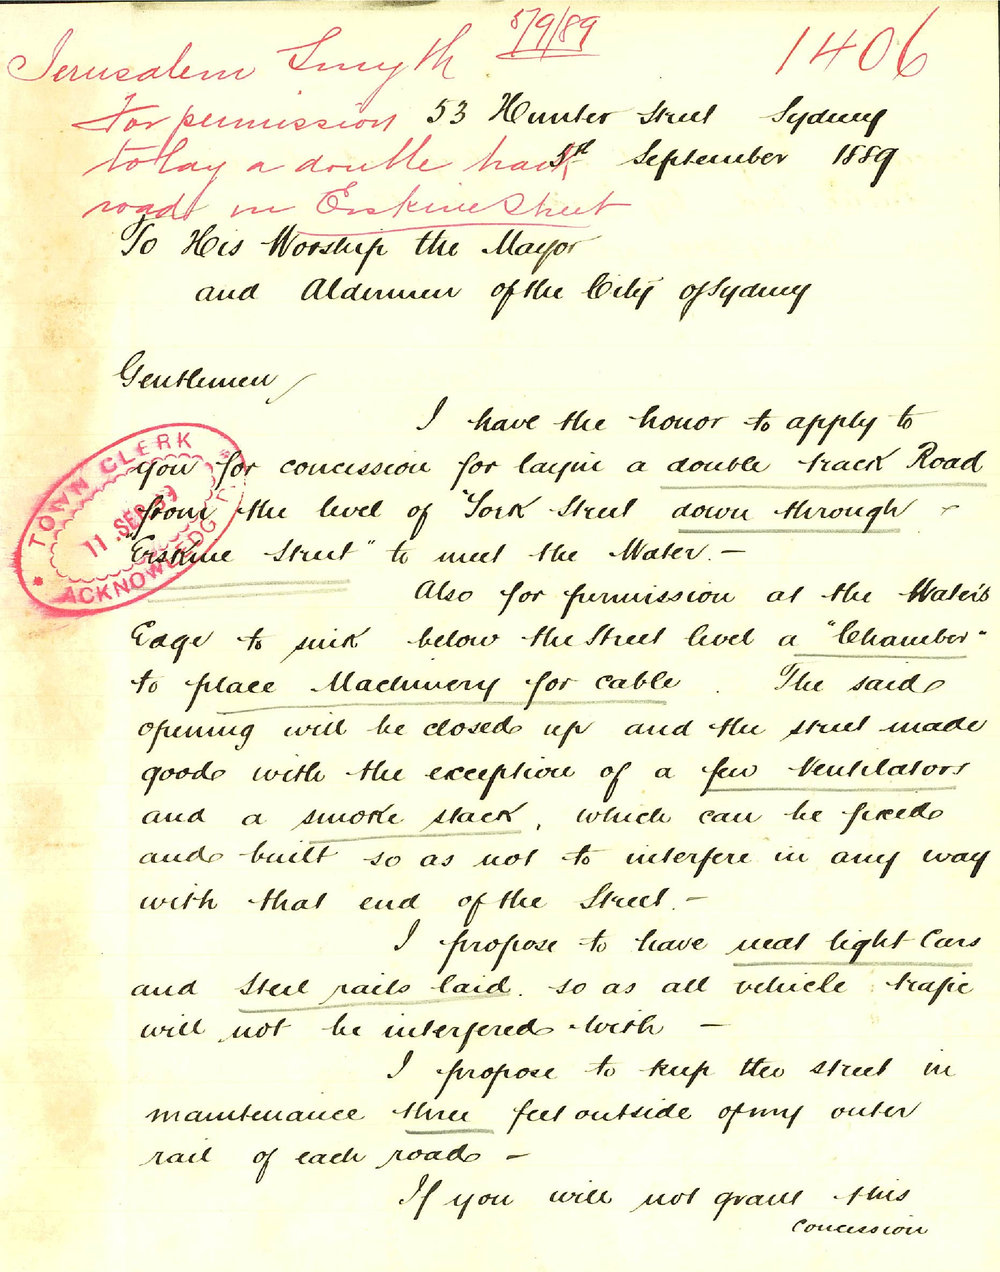 5/9/89
Jerusalem Smyth
1406
For permission
to lay a double track
road in Erskine Street
53 Hunter Street Sydney
5th September 1889
To His Worship the Mayor
and Aldermen of the City of Sydney
Gentlemen,
I have the honor to apply to
you for concession for layin a double track Road
from the level of "York Street down through
Erskine Street" to meet the Water. —
TOWN CLERK
11 SEP 89
ACKNOWLEDG
Also for permission at the Water's
Edge to sink below the Street level a "Chamber"
to place Machinery for cable. The said
opening will be closed up and the street made
good with the exception of a few Ventilators
and a smoke stack, which can be fixed
and built so as not to interfere in any way
with that end of the Street. —
I propose to have neat light Cars
and Steel rails laid. so as all vehicle trafic
will not be interfered with —
I propose to keep the street in
maintenance three feet outside of my outer
rail of each road —
If you will not grant this
concession